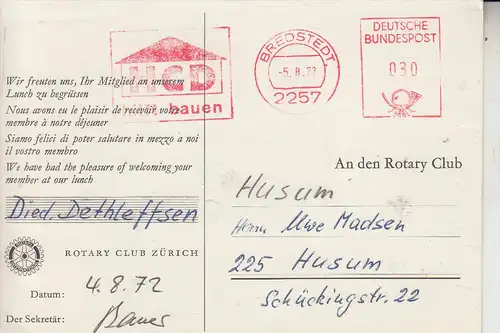 HGD
bauen
BREDSTEDT
-5.8.72
2257
DEUTSCHE
BUNDESPOST
030
Wir freuten uns, Ihr Mitglied an unserem
Lunch zu begrüssen
Nous avons eu le plaisir de recevoir votre
membre à notre déjeuner
Siamo felici di poter salutare in mezzo a noi
il vostro membro
We have had the pleasure of welcoming your
member at our lunch
Died. Dethleffsen
ROTARY CLUB ZÜRICH
Datum: 4.8.72
Der Sekretär: Bauer
An den Rotary Club
Husum
Herrn Uwe Madsen
225 Husum
Schückingstr. 22